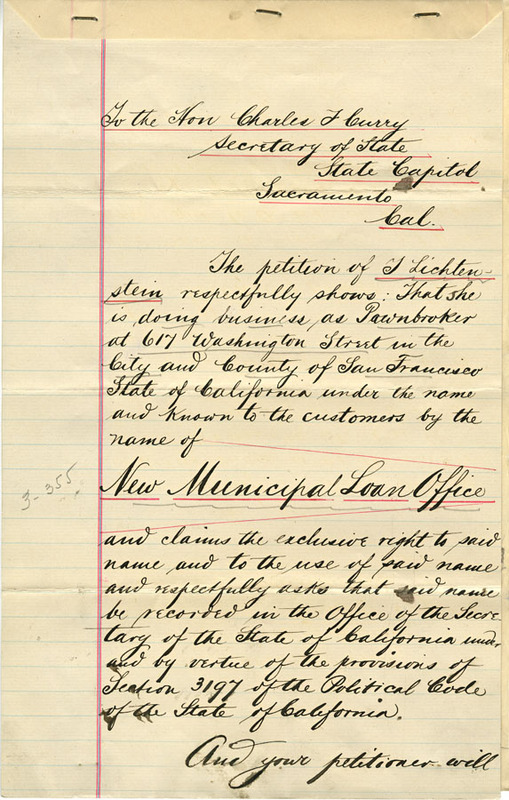 To the Hon Charles F Curry
Secretary of State
State Capitol
Sacramento
Cal.
The petition of I Lichten-
stein respectfully shows: That she
is doing business as Pawnbroker
at 617 Washington Street in the
City and County of San Francisco
State of California under the name
and Known to the customers by the
name of
3-355
New Municipal Loan Office
and claims the exclusive right to said
name and to the use of said name
and respectfully asks that said name
be recorded in the Office of the Secre-
tary of the State of California under
and by vertue of the provisions of
Section 3197 of the Political Code
of the State of California.
And your petitioner will